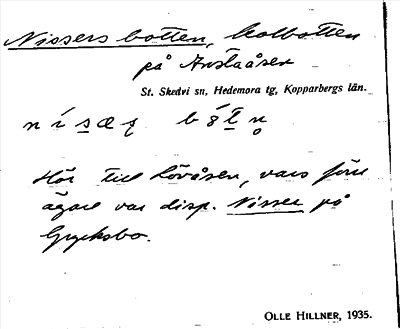 Nissers botten, kolbotten
på Avstaåsen
St. Skedvi sn, Hedemora tg, Kopparbergs län.
Hör till Löråsen, vars före
ägare var disp. Nisser på
Grycksbo.
OLLE HILLNER, 1935.